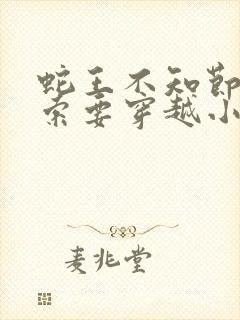 蛇王不知节
索要穿越小
麦兆堂